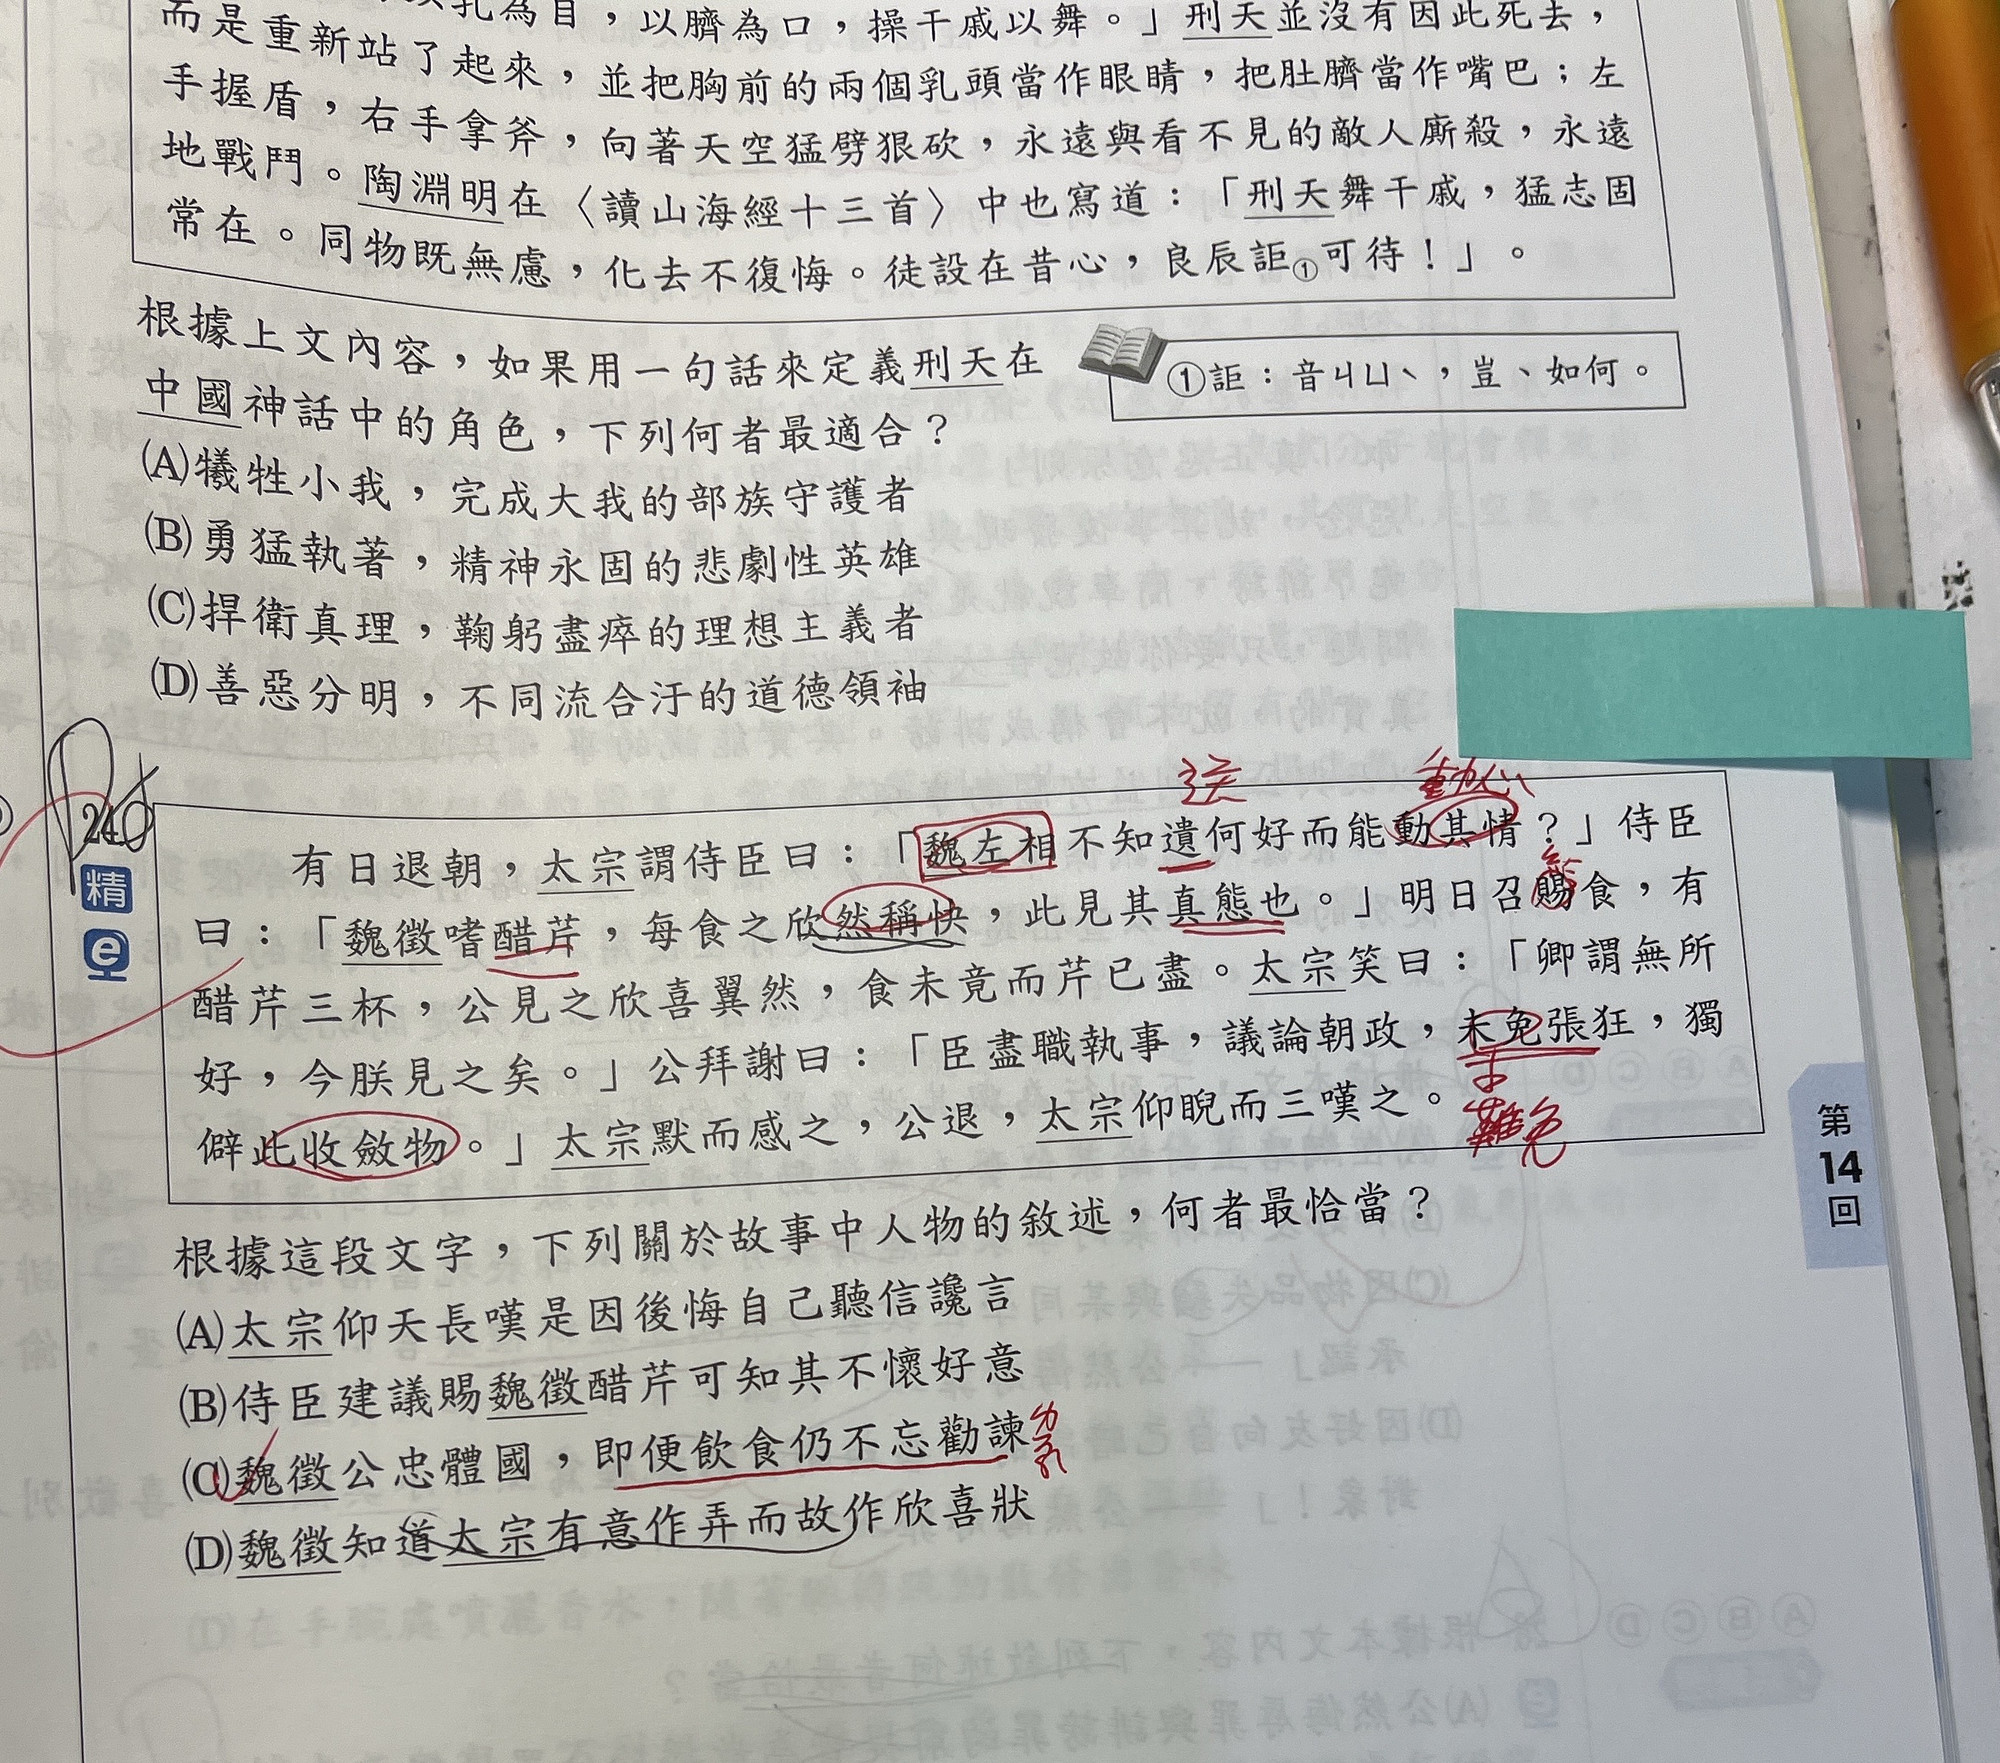 乳為目，以臍為口，操干戚以舞。」刑天並沒有因此死去，
而是重新站了起來，並把胸前的兩個乳頭當作眼睛，把肚臍當作嘴巴；左
手握盾，右手拿斧，向著天空猛劈狠砍，永遠與看不見的敵人廝殺，永遠
地戰鬥。陶淵明在〈讀山海經十三首〉中也寫道：「刑天舞干戚，猛志固
常在。同物既無慮，化去不復悔。徒設在昔心，良辰詎①可待！」。
①詎：音ㄐㄩˋ，豈、如何。
根據上文內容，如果用一句話來定義刑天在
中國神話中的角色，下列何者最適合？
(A)犧牲小我，完成大我的部族守護者
(B)勇猛執著，精神永固的悲劇性英雄
(C)捍衛真理，鞠躬盡瘁的理想主義者
(D)善惡分明，不同流合汙的道德領袖
送
動心
24
精
e
有日退朝，太宗謂侍臣曰：「魏左相不知遺何好而能動其情？」侍臣
曰：「魏徵嗜醋芹，每食之欣然稱快，此見其真態也。」明日召賜食，有
醋芹三杯，公見之欣喜翼然，食未竟而芹已盡。太宗笑曰：「卿謂無所
好，今朕見之矣。」公拜謝曰：「臣盡職執事，議論朝政，未免張狂，獨
僻此收斂物。」太宗默而感之，公退，太宗仰睨而三嘆之。
難免
第
14
回
根據這段文字，下列關於故事中人物的敘述，何者最恰當？
(A)太宗仰天長嘆是因後悔自己聽信讒言
(B)侍臣建議賜魏徵醋芹可知其不懷好意
(C)魏徵公忠體國，即便飲食仍不忘勸諫
(D)魏徵知道太宗有意作弄而故作欣喜狀